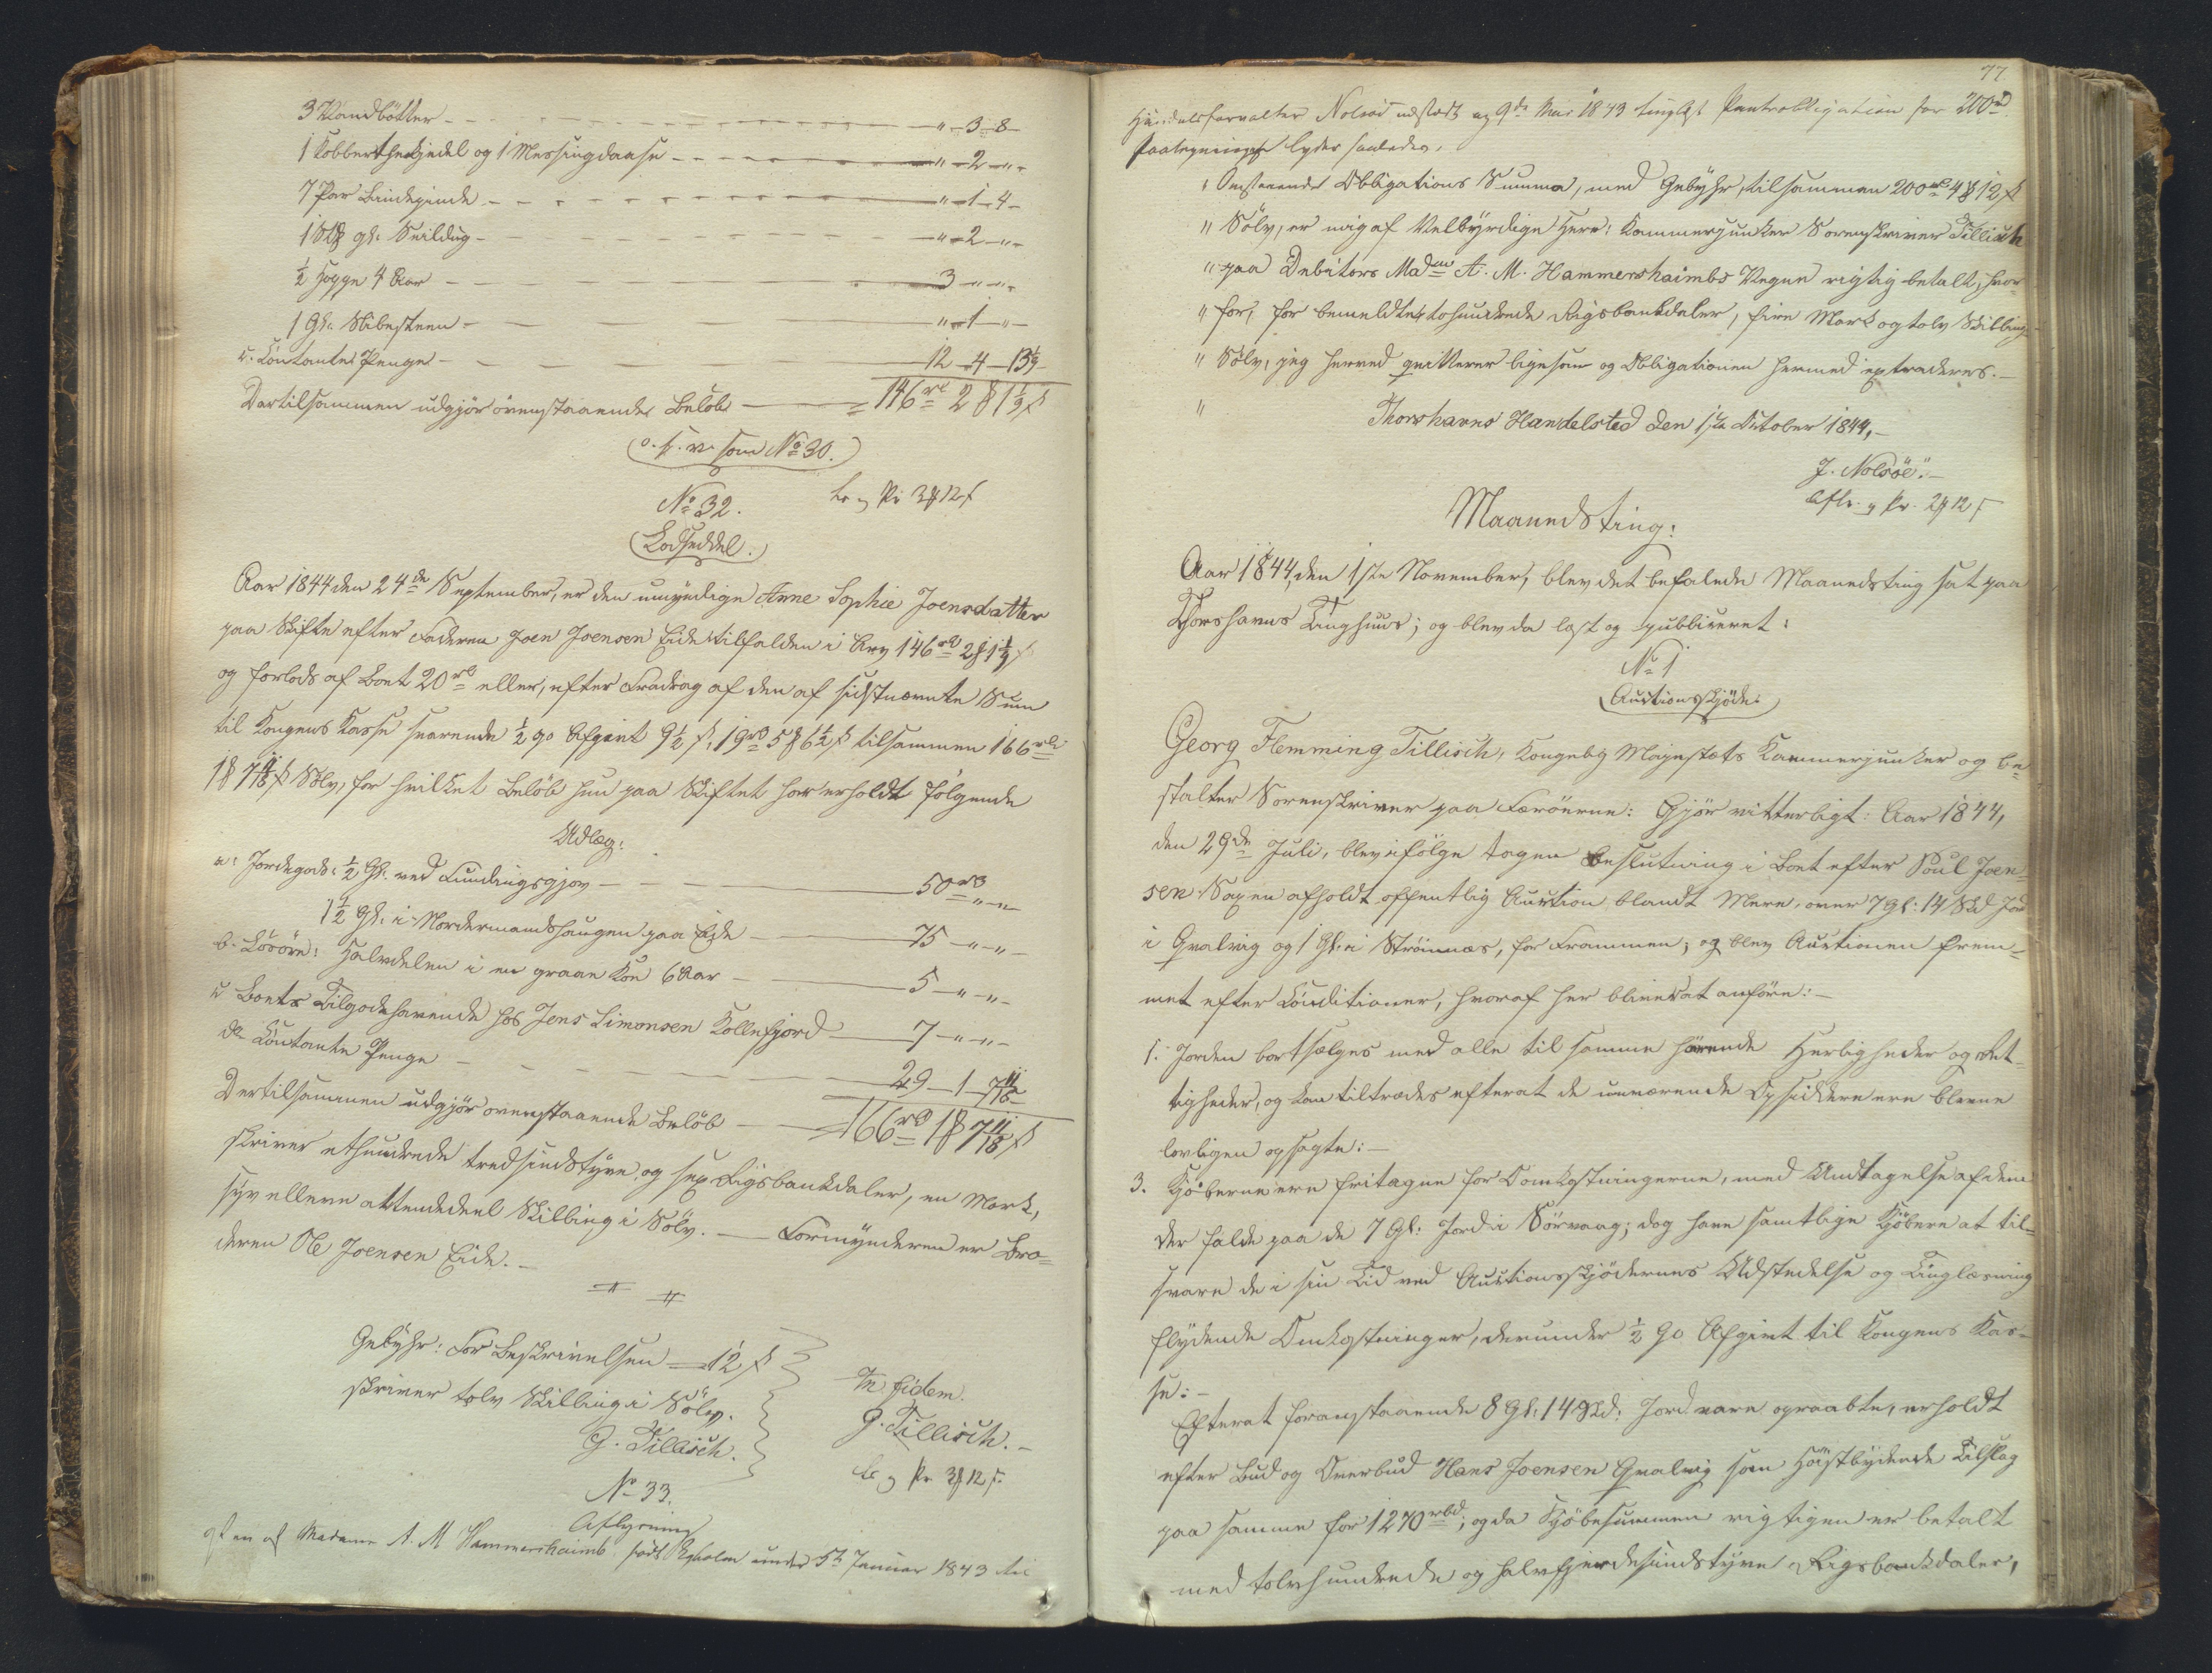 3 Vandbøtter - - - " - 3 - 8 -
1 Kobberthekjedel og 1 Messingdaase - - - " - 2 - " -
7 Par Bindepinde - - - " - 1 - 4 -
1 gl: Seildug - - - " - 2 - " -
½ Hoppe 4 Aar - - - 3 - " - " -
1 Gl: Slibesteen - - - " - 1 - " -
c. Contante Penge - - - 12 - 4 - 13½
Dertilsammen udgjør ovenstaaende Beløb — = 146 rbd 2 ℳ 1½ ß
(o. s. v. som No 30.)
No 32. Lr og Pr 3 ℳ 12 ß
(Lodseddel.)
Aar 1844 den 24de September, er den umyndige Anne Sophie Joensdatter
paa Skifte efter Faderen Joen Joensen Eide tilfalden i Arv 146 rbd 2 ℳ 1½ ß
og forlods af Boet 20 rbd eller, efter Fradrag af den af sidstnævnte Sum
til Kongens Kasse svarende ½ pC Afgivt 9½ ß, 19 rbd 5 ℳ 6½ ß tilsammen 166 rbd
1 ℳ 7 11/18 ß Sølv, for hvilket Beløb hun paa Skiftet har erholdt følgende
Udlæg:
a: Jordegods: ½ Gl: ved Fundingsgjov - - - 50 rbd " - " -
1½ Gl: i Nordermandshaugen paa Eide — 75 - " - " -
b. Løsøre: Halvdelen i en graae Koe 6 Aar — 5 - " - " -
c Boets Tilgodehavende hos Jens Simonsen Kollefjord — 7 - " - " -
d. Contante Penge - - - 29 - 1 - 7 11/18
Dertilsammen udgjør ovenstaaende Beløb — = 166 rbd 1 ℳ 7 11/18 ß
skriver ethundrede tredsindstyve og sex Rigsbankdaler, en Mark,
syv elleve attendedeel Skilling i Sølv. — Formynderen er Bro-
deren Ole Joensen Eide. —
Gebyhr: For Beskrivelsen — 12 ß
skriver tolv Skilling i Sølv.
G. Tillisch.
In fidem.
G. Tillisch. —
Lr og Pr 3 ℳ 12 ß.
No 33.
Aflysning
af en af Madame A. M Hammershaimb født Egholm under 5te Januar 1843 til
77
Handelsforvalter Nolsøe udstædt og 9de Mai 1843 tinglyst Panteobligation for 200 rbd
Paategningen lyder saaledes.
" Omstaaende Obligations Summa, med Gebyhr, tilsammen 200 rbd 4 ℳ 12 ß
" Sølv, er mig af Velbyrdige Herr: Kammerjunker Sorenskriver Tillisch
" paa Debitors Madme A. M. Hammershaimbs Vegne rigtig betalt, hvor-
" for, for bemeldte tohundrede Rigsbankdaler, fire Mark og tolv Skilling
" Sølv, jeg herved qvitterer ligesom og Obligationen hermed extraderes. —
" Thorshavns Handelsted den 1ste October 1844, —
J. Nolsöe". —
Afls. og Pr. 2 ℳ 12 ß
Maanedsting:
Aar 1844, den 1ste November, blev det befalede Maanedsting sat paa
Thorshavns Tinghuus; og blev da læst og publiceret:
No 1
(Auctionsskjøde:)
Georg Flemming Tillisch, Kongelig Majestæts Kammerjunker og be-
stalter Sorenskriver paa Færøerne: Gjør vitterligt: Aar 1844,
den 29de Juli, blev ifølge tagen Beslutning i Boet efter Poul Joen-
sen Saxen afholdt offentlig Auction blandt Mere, over 7 Gl: 14 Skd Jord
i Qvalvig og 1 Gl: i Strømnæs, for Frammen; og blev Auctionen frem-
met efter Conditioner, hvoraf her bliver at anføre: —
1. Jorden bortsælges med alle til samme hørende Herligheder og Ret-
tigheder, og kan tiltrædes efterat de nuværende Opsiddere ere blevne
lovligen opsagte: —
3. Kjøberne ere fritagne for Omkostningerne, med Undtagelse af dem
der falde paa de 7 Gl: Jord i Sørvaag; dog have samtlige Kjøbere at til-
svare de i sin Tid ved Auctionsskjødernes Udstedelse og Tinglæsning
flydende Omkostninger, derunder ½ pC Afgivt til Kongens Kas-
se: —
Efterat foranstaaende 8 Gl: 14 Skd: Jord vare opraabte, erholdt
efter Bud og Overbud Hans Joensen Qvalvig som Høistbydende Tilslag
paa samme for 1270 rbd; og da Kjøbesummen rigtigen er betalt
med tolvhundrede og halvfjerdesindstyve Rigsbankdaler,